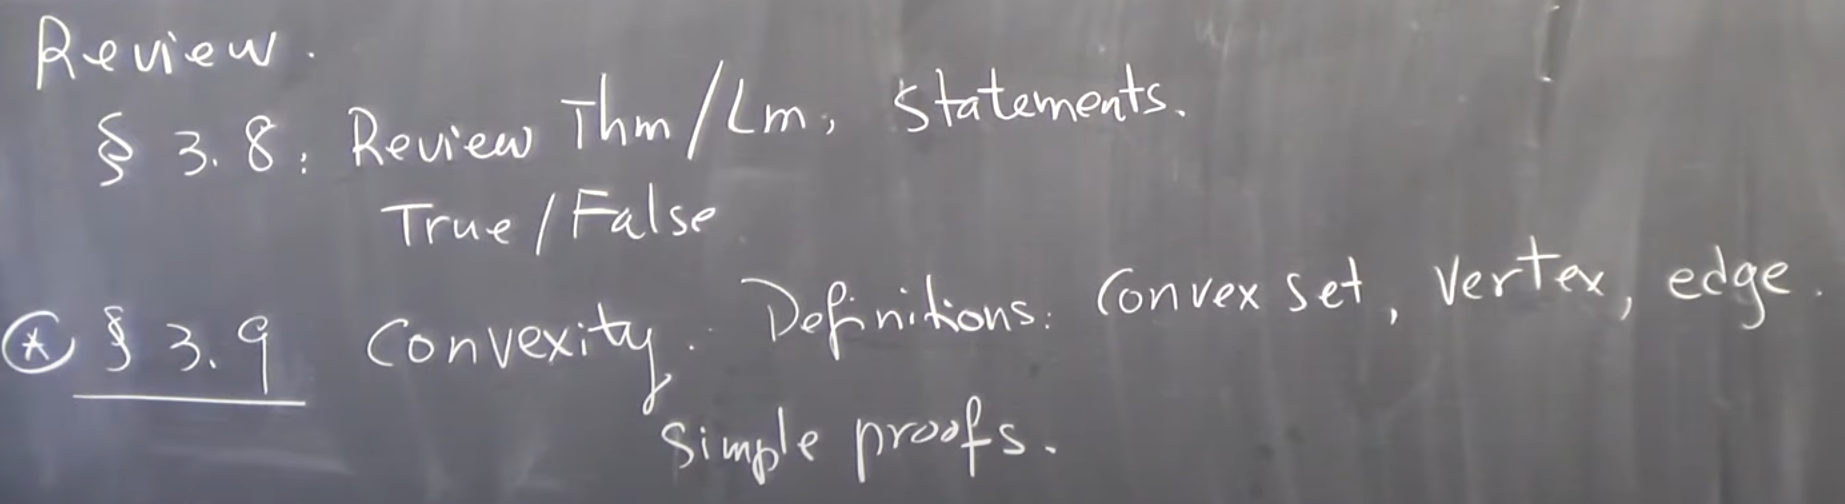 Review.
§ 3.8: Review Thm/Lm, statements.
True/False
⊛ § 3.9 Convexity. Definitions: Convex set, vertex, edge.
simple proofs.